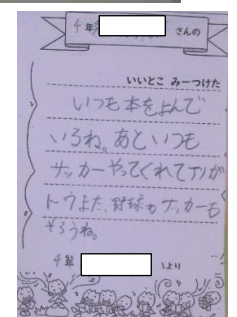 4年 さんの
いいとこ みーつけた
いつも本をよんで
いるね。あといつも
サッカーやってくれてアリが
トウまた、野球もサッカーも
やろうね。
4年 より